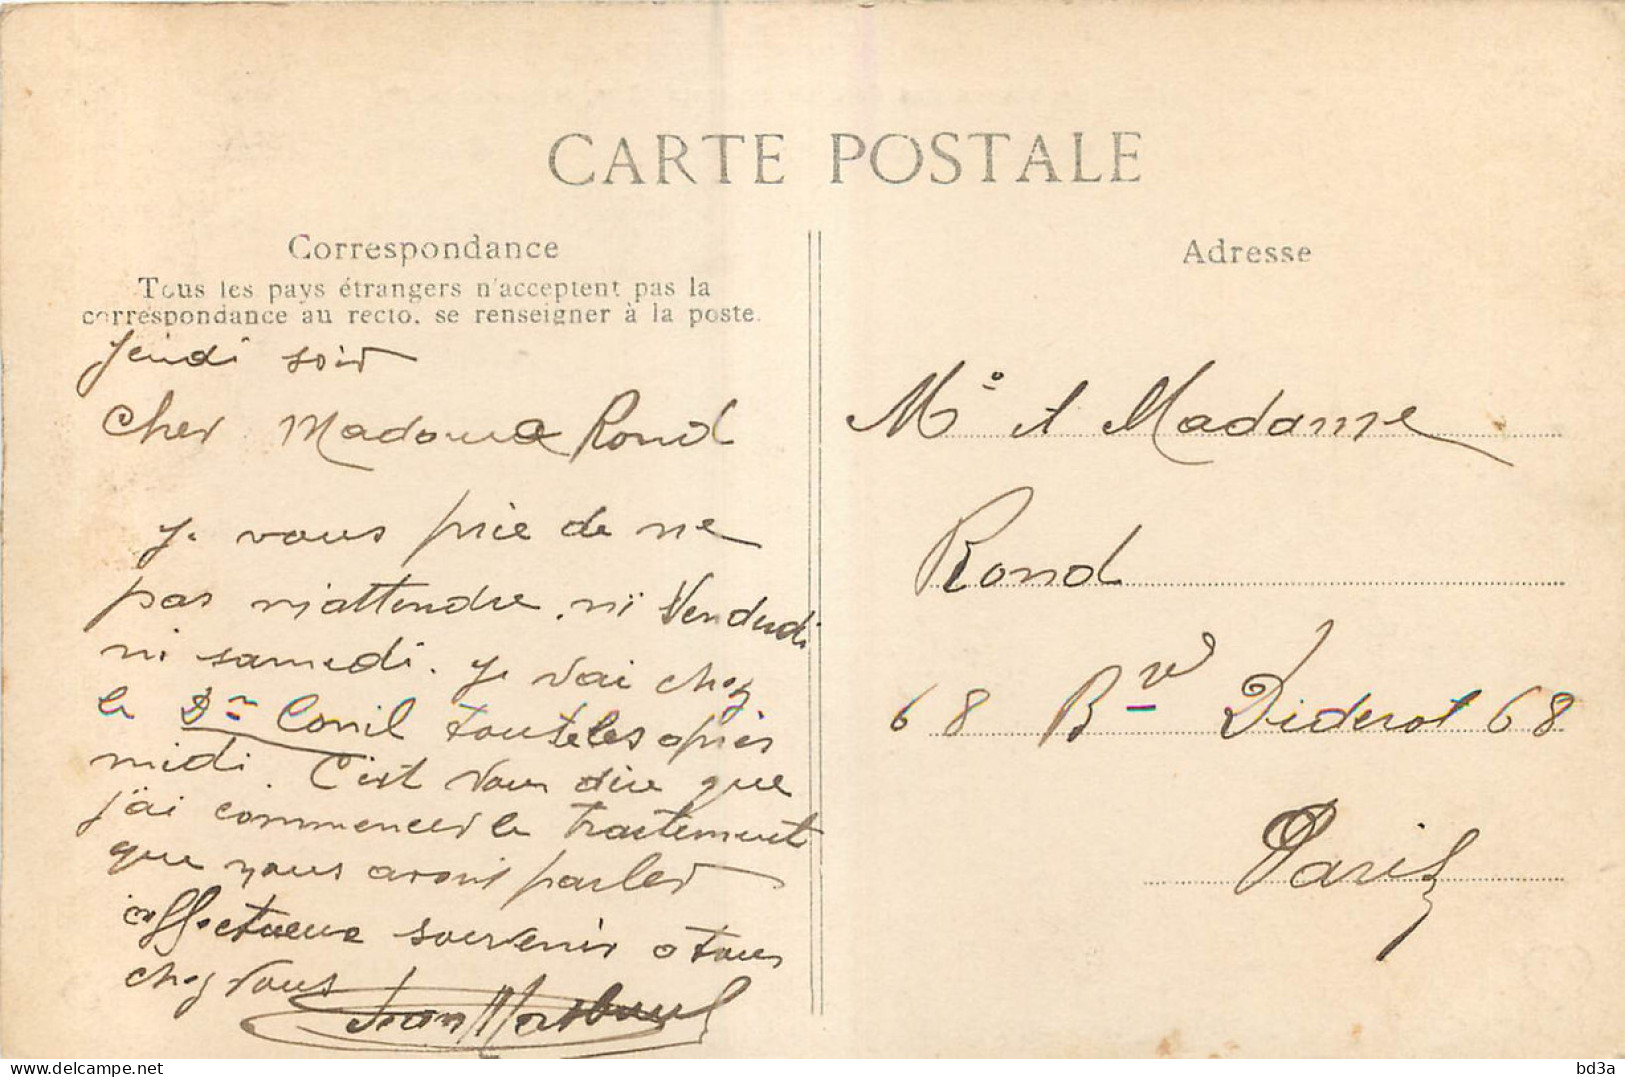 CARTE POSTALE
Correspondance
Tous les pays étrangers n'acceptent pas la
correspondance au recto, se renseigner à la poste.
Jeudi soir
Cher Madame Rond
Je vous prie de ne
pas m'attendre. ni Vendredi
ni samedi. Je vai chez
le Dr Conil toute les après
midi. C'est vous dire que
j'ai commencer le traitement
que nous avons parler
affectueux souvenir a tous
chez vous
Jean
Adresse
Mr et Madame
Rond
68 Bvd Diderot 68
Paris
delcampe.net
bd3a